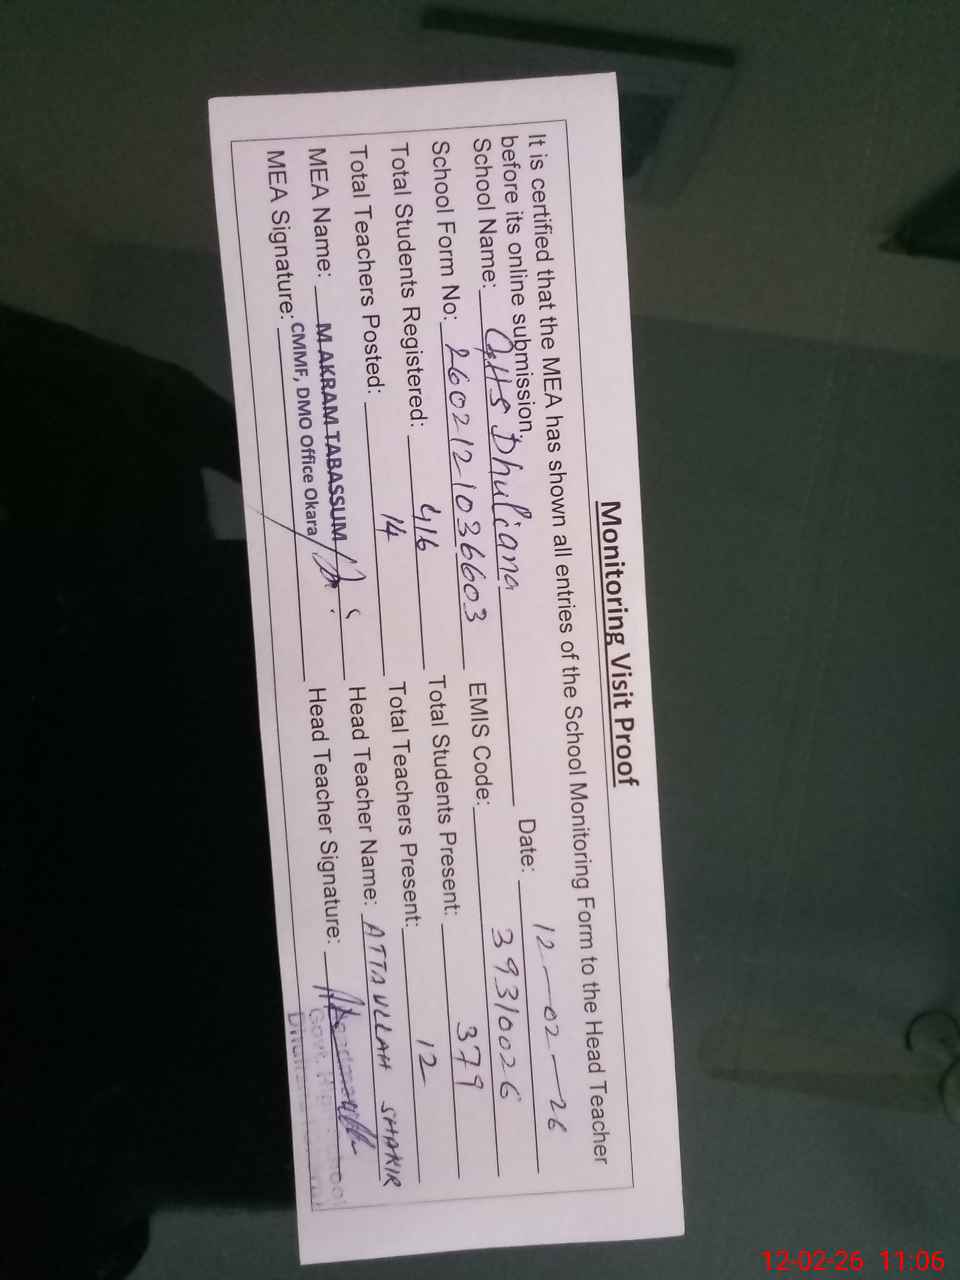 Monitoring Visit Proof
It is certified that the MEA has shown all entries of the School Monitoring Form to the Head Teacher
before its online submission. Date: 12-02-26
School Name: GHS Dhuliana
School Form No: 2602121036603 EMIS Code: 39310026
Total Students Registered: 416 Total Students Present: 379
Total Teachers Posted: 14 Total Teachers Present: 12
MEA Name: M AKRAM TABASSUM Head Teacher Name: ATTA ULLAH SHAKIR
CMMF, DMO Office Okara
MEA Signature: Head Teacher Signature:
Govt. High School
12-02-26 11:06